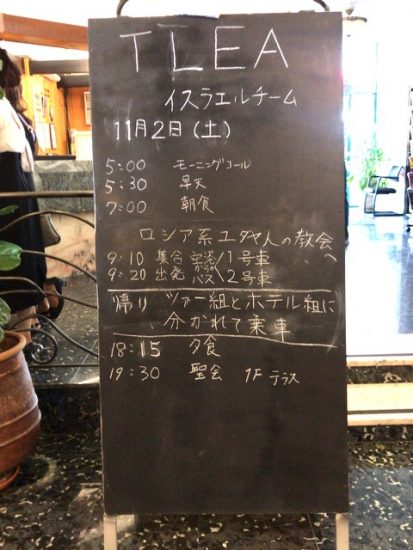 TLEA
イスラエルチーム
11月2日(土)
5:00 モーニングコール
5:30 早天
7:00 朝食
ロシア系ユダヤ人の教会へ
9:10 集合 空港からの 1号車
9:20 出発 バス 2号車
帰り ツアー組とホテル組に
分かれて乗車
18:15 夕食
19:30 聖会 1F テラス